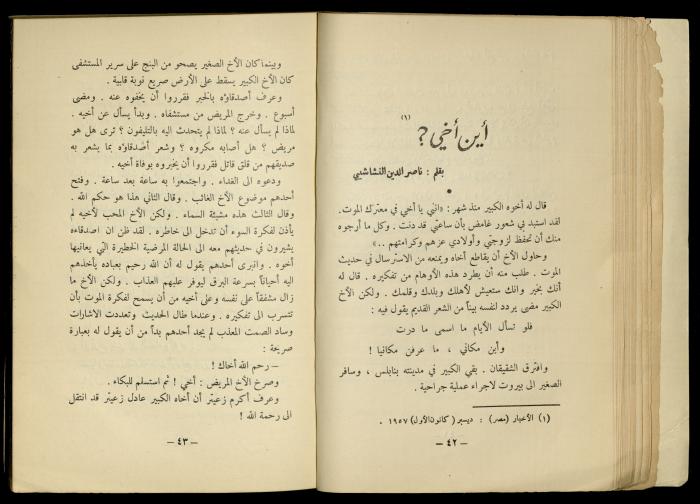 (١)
أين أخي ?
بقلم : ناصر الدين النشاشيبي
قال له أخوه الكبير منذ شهر : «انني يا أخي في معترك الموت.
لقد استبد بي شعور غامض بأن ساعتي قد دنت . وكل ما أرجوه
منك أن تحفظ لزوجتي وأولادي عزهم وكرامتهم ..»
وحاول الأخ أن يقاطع أخاه ويمنعه من الاسترسال في حديث
الموت . طلب منه أن يطرد هذه الأوهام من تفكيره . قال له
أنك بخير وانك ستعيش لأهلك وبلدك وقلمك . ولكن الأخ
الكبير مضى يردد لنفسه بيتاً من الشعر القديم يقول فيه :
فلو تسأل الأيام ما اسمى ما درت
وأين مكاني ، ما عرفن مكانيا !
وافترق الشقيقان . بقي الكبير في مدينته بنابلس ، وسافر
الصغير الى بيروت لاجراء عملية جراحية .
(١) الأخبار (مصر) : ديسبر (كانون الأول) ١٩٥٧ .
— ٤٢ —
وبينما كان الأخ الصغير يصحو من البنج على سرير المستشفى
كان الأخ الكبير يسقط على الأرض صريع نوبة قلبية .
وعرف أصدقاؤه بالخبر فقرروا أن يخفوه عنه . ومضى
أسبوع . وخرج المريض من مستشفاه . وبدأ يسأل عن أخيه .
لماذا لم يسأل عنه ؟ لماذا لم يتحدث اليه بالتليفون ؟ ترى هل هو
مريض ؟ هل أصابه مكروه ؟ وشعر أصدقاؤه بما يشعر به
صديقهم من قلق قاتل فقرروا أن يخبروه بوفاة أخيه .
ودعوه الى الغداء . واجتمعوا به ساعة بعد ساعة . وفتح
أحدهم موضوع الأخ الغائب . وقال الثاني هذا هو حكم الله .
وقال الثالث هذه مشيئة السماء . ولكن الأخ المحب لأخيه لم
يأذن لفكرة السوء أن تدخل الى خاطره . لقد ظن ان اصدقاءه
يشيرون في حديثهم معه الى الحالة المرضية الخطيرة التي يعانيها
أخوه . وانبرى أحدهم يقول له أن الله رحيم بعباده يأخذهم
اليه أحياناً بسرعة البرق ليوفر عليهم العذاب . ولكن الأخ ما
زال مشفقاً على نفسه وعلى أخيه من أن يسمح لفكرة الموت بأن
تتسرب الى تفكيره . وعندما طال الحديث وتعددت الاشارات
وساد الصمت المعذب لم يجد أحدهم بداً من أن يقول له بعبارة
صريحة :
– رحم الله أخاك !
وصرخ الأخ المريض : أخي ! ثم استسلم للبكاء .
وعرف أكرم زعيتر أن أخاه الكبير عادل زعيتر قد انتقل
الى رحمة الله !
— ٤٣ —